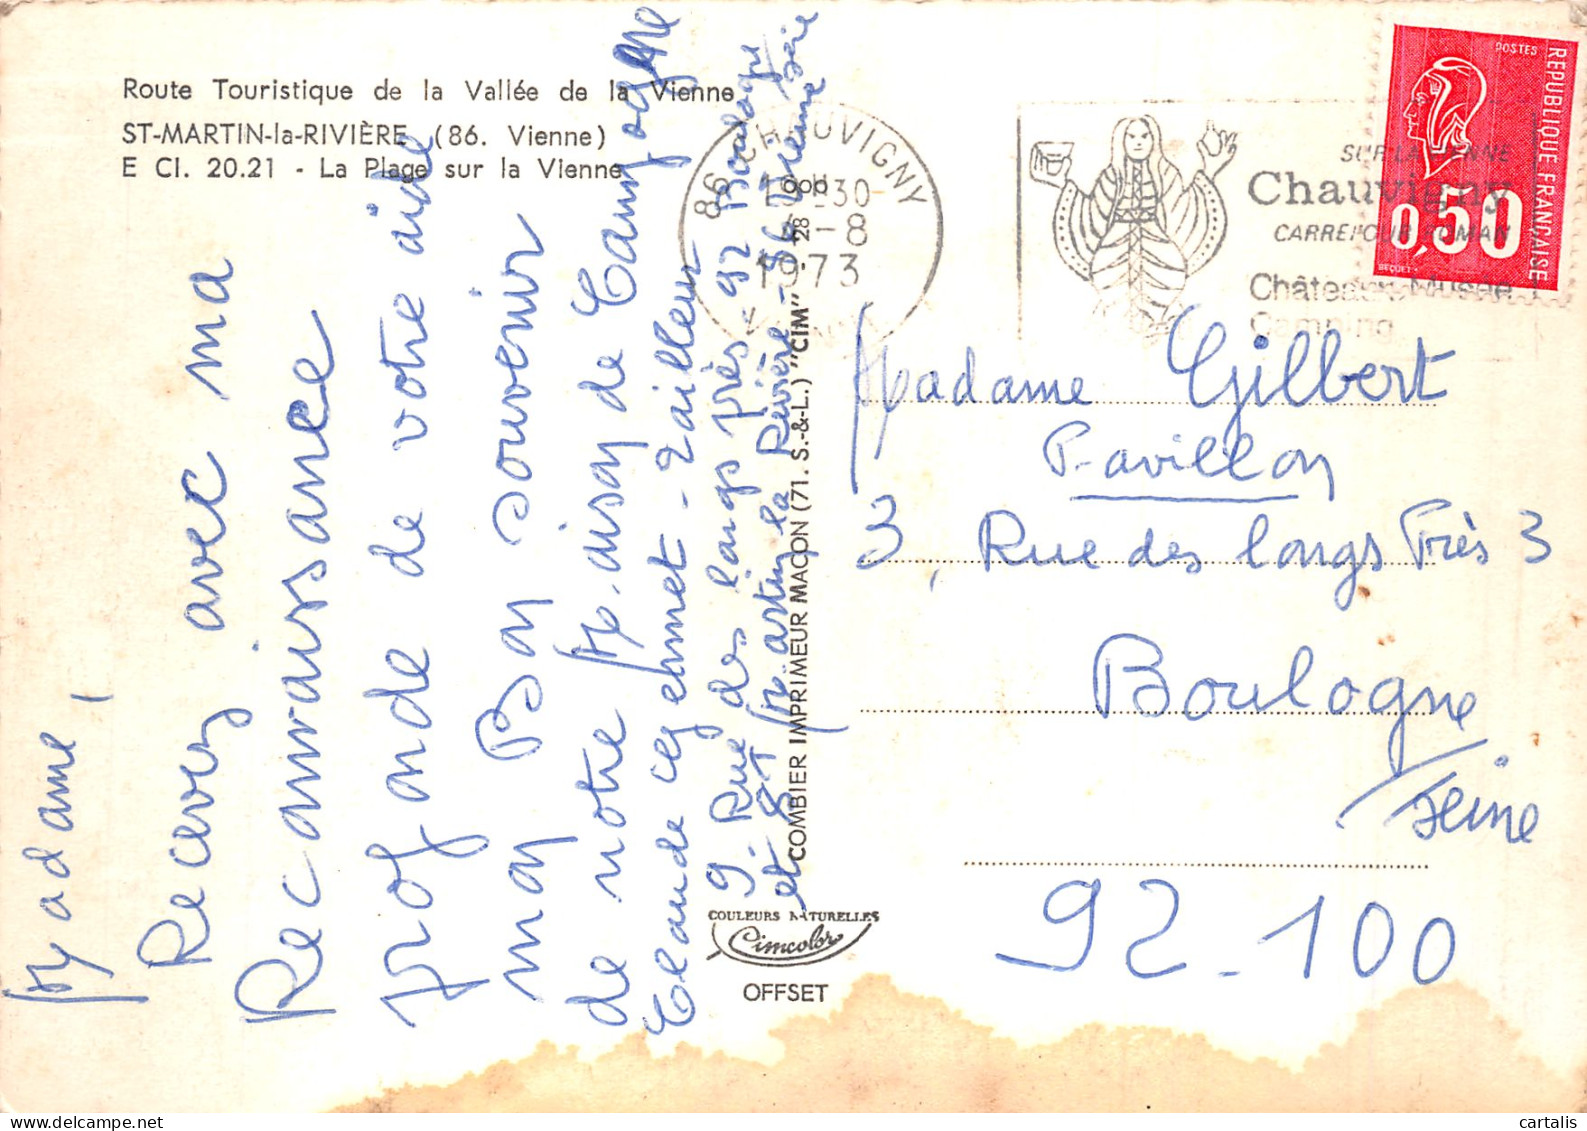 Route Touristique de la Vallée de la Vienne
ST-MARTIN-la-RIVIÈRE (86. Vienne)
E CI. 20.21 - La Plage sur la Vienne
86 CHAUVIGNY
30
-8
1973
SUR LA VIENNE
Chauvigny
CARREFOUR ROMAN
Château-Musée
Camping
POSTES
REPUBLIQUE FRANÇAISE
0,50
BEQUET
Madame,
Recevez avec ma
Reconnaissance
profonde de votre aide
mon Bon souvenir
de notre Maison de Campagne
Claude et
9. Rue des longs près - 92 Boulogne
et St Martin la Rivière - 86 Vienne
COMBIER IMPRIMEUR MACON (71. S.-&-L.) "CIM"
COULEURS NATURELLES
Cimcolor
OFFSET
Madame Gilbert
Pavillon
3, Rue des longs Près 3
Boulogne
/Seine
92-100
cartalis